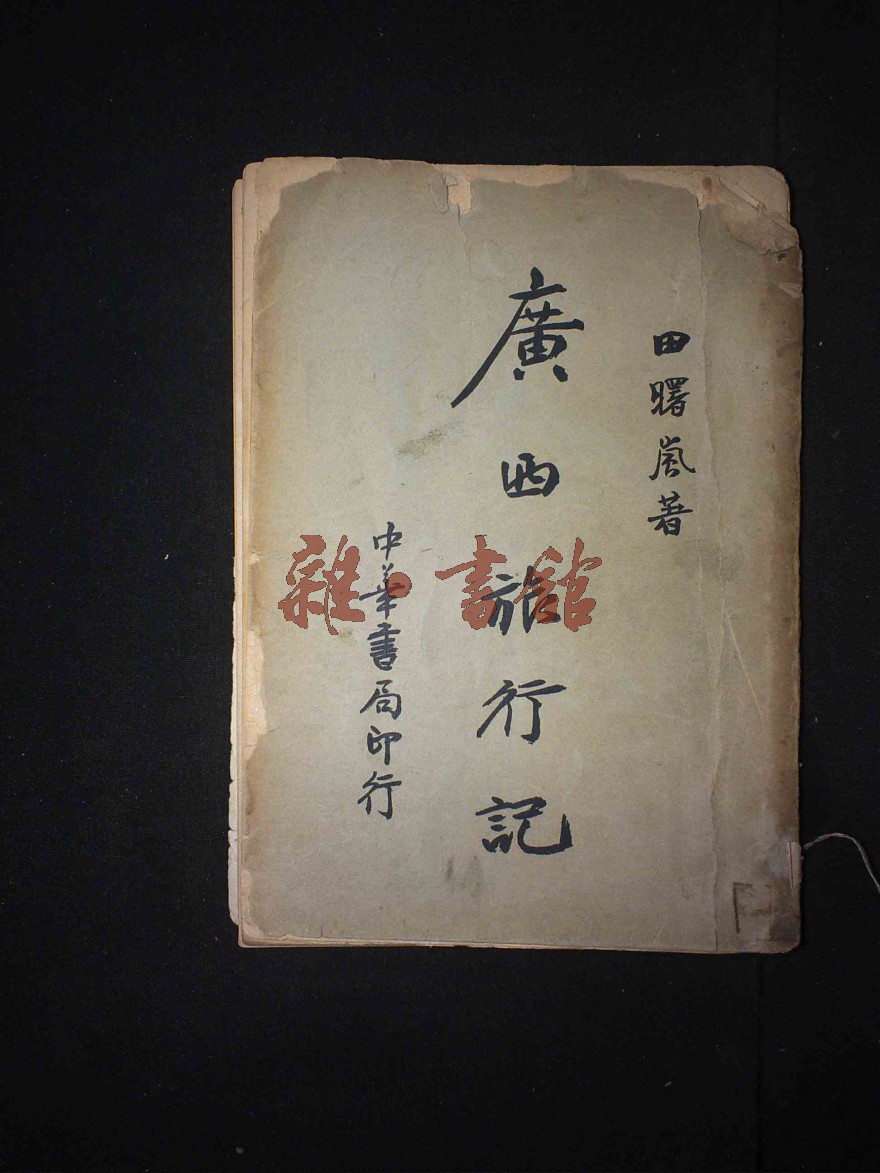 田曙嵐著
廣西旅行記
中華書局印行
雜·書館